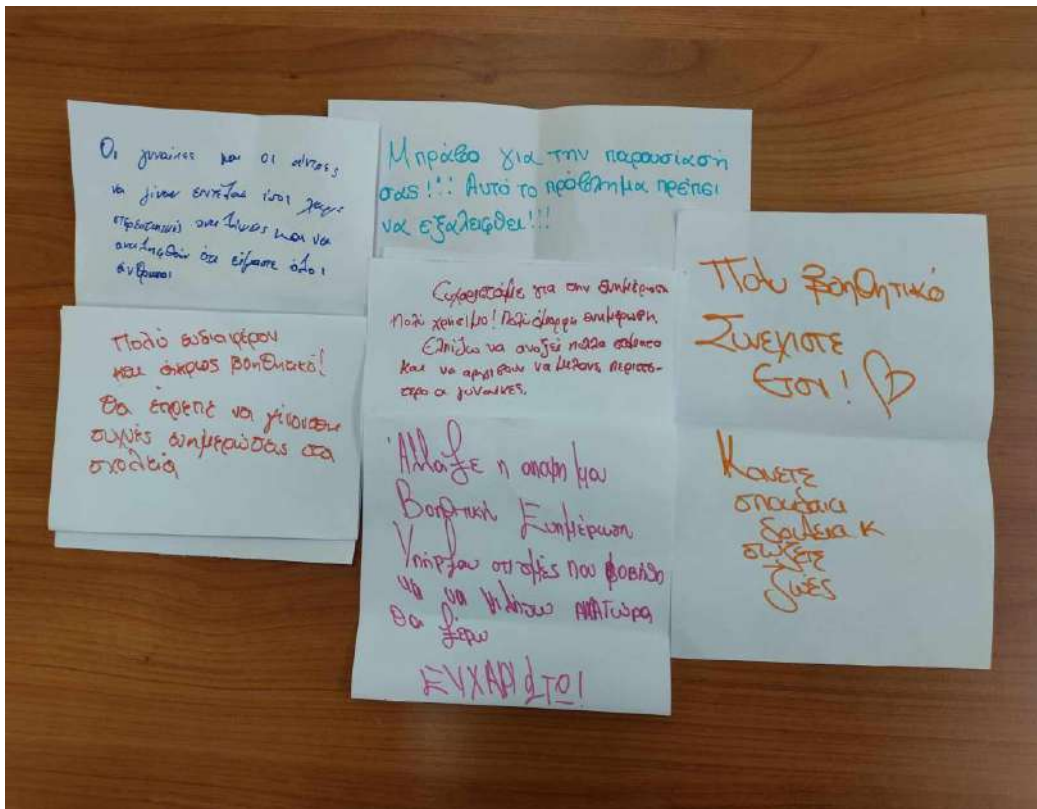 Οι γυναίκες και οι άντρες
να γίνουν επιτέλους ίσοι χωρίς
στερεοτυπικές αντιλήψεις και να
αντιληφθούν ότι είμαστε όλοι
άνθρωποι
Μπράβο για την παρουσίασή
σας!!! Αυτό το πρόβλημα πρέπει
να εξαλειφθεί!!!
Πολύ ενδιαφέρον
και άκρως βοηθητικό!
Θα έπρεπε να γίνονται
συχνές ενημερώσεις στα
σχολεία
Ευχαριστούμε για την ενημέρωση
Πολύ χρήσιμο! Πολύ όμορφη ενημέρωση
Ελπίζω να ανοίξει πολλά στόματα
και να αρχίσουν να μιλάνε περισσ-
ότερο οι γυναίκες.
Άλλαξε η οπτική μου
Βοηθητική Ενημέρωση
Υπήρξαν στιγμές που φοβήθη
κα να μιλήσω αλλά τώρα
θα ξέρω
ΕΥΧΑΡΙΣΤΩ!
Πολυ βοηθητικό
Συνεχιστε
έτσι!
Κανετε
σπουδαια
δουλεια κ
σώζετε
ζωές